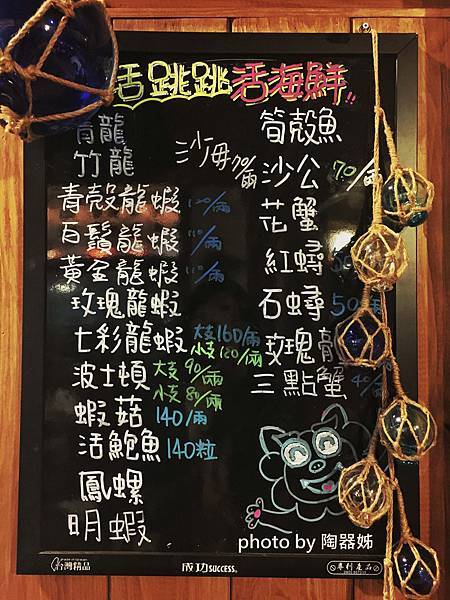 活跳跳活海鮮!!
青龍
竹龍
沙母70/兩
青殼龍蝦120/兩
百鬚龍蝦110/兩
黃金龍蝦110/兩
玫瑰龍蝦
七彩龍蝦大支160/兩
小支120/兩
波士頓大支90/兩
小支80/兩
蝦菇140/兩
活鮑魚140粒
鳳螺
明蝦
筍殼魚
沙公70/兩
花蟹
紅蟳
石蟳50
玫瑰龍
三點蟹40/兩
photo by 陶器姊
台灣精品
成功SUCCESS.
專利產品